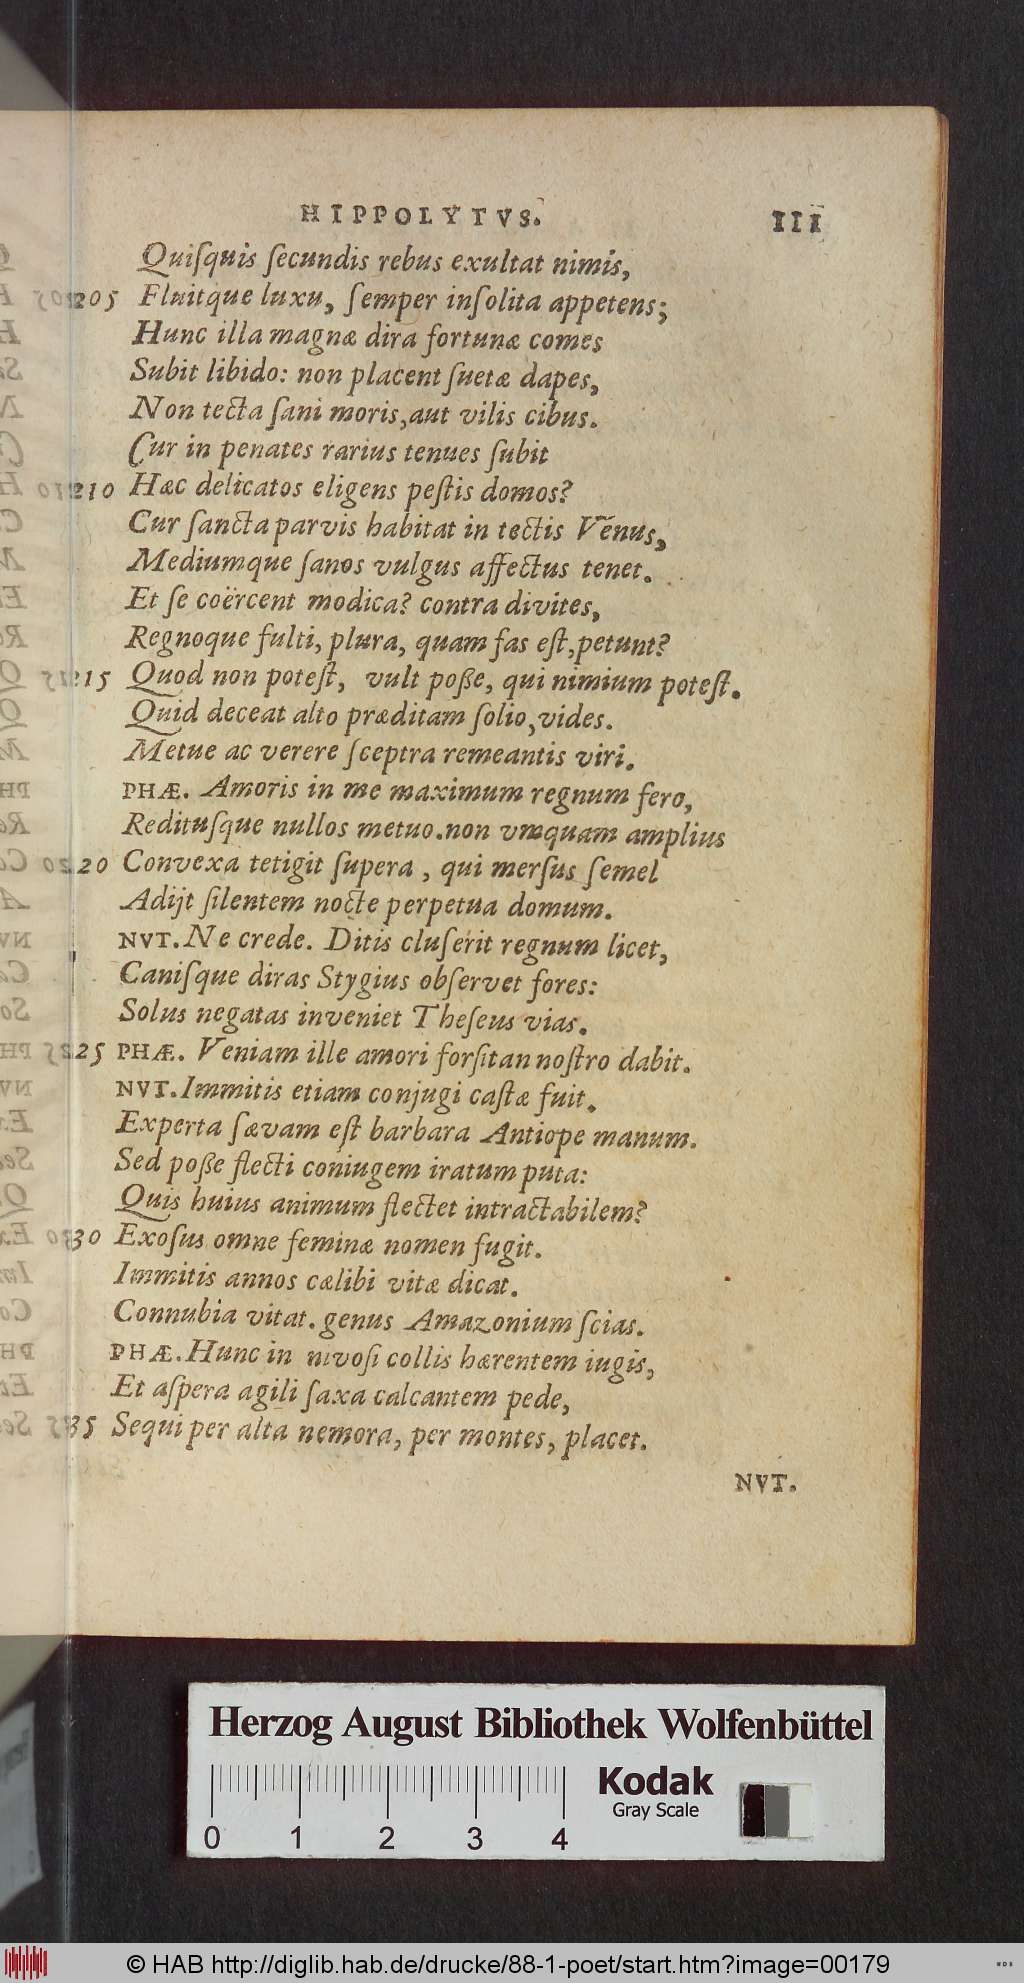 HIPPOLYTVS. 111
Quiſquis ſecundis rebus exultat nimis,
205 Fluitque luxu, ſemper inſolita appetens;
Hunc illa magnæ dira fortunæ comes
Subit libido: non placent ſuetæ dapes,
Non tecta ſani moris, aut vilis cibus.
Cur in penates rarius tenues ſubit
210 Hæc delicatos eligens peſtis domos?
Cur ſancta parvis habitat in tectis Venus,
Mediumque ſanos vulgus affectus tenet.
Et ſe coërcent modica? contra divites,
Regnoque fulti, plura, quam fas eſt, petunt?
215 Quod non poteſt, vult poße, qui nimium poteſt.
Quid deceat alto præditam ſolio, vides.
Metue ac verere ſceptra remeantis viri.
PHÆ. Amoris in me maximum regnum fero,
Redituſque nullos metuo. non vmquam amplius
220 Convexa tetigit ſupera, qui merſus ſemel
Adijt ſilentem nocte perpetua domum.
NVT. Ne crede. Ditis cluſerit regnum licet,
Caniſque diras Stygius obſervet fores:
Solus negatas inveniet Theſeus vias.
225 PHÆ. Veniam ille amori forſitan noſtro dabit.
NVT. Immitis etiam conjugi caſtæ fuit.
Experta ſævam eſt barbara Antiope manum.
Sed poße flecti coniugem iratum puta:
Quis huius animum flectet intractabilem?
230 Exoſus omne feminæ nomen fugit.
Immitis annos cælibi vitæ dicat.
Connubia vitat. genus Amazonium ſcias.
PHÆ. Hunc in nivoſi collis hærentem iugis,
Et aſpera agili ſaxa calcantem pede,
35 Sequi per alta nemora, per montes, placet.
NVT.
Herzog August Bibliothek Wolfenbüttel
Kodak
Gray Scale
0 1 2 3 4
© HAB http://diglib.hab.de/drucke/88-1-poet/start.htm?image=00179